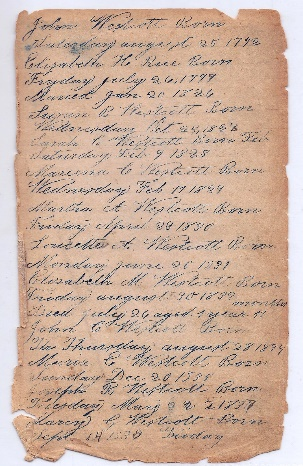 John Westcott Born
Saturday august 25 1792
Elizabeth H Born
Fryday july 26 1799
Maried Jan 20 1826
Susan R Westcott Born
Wednesday Oct
Sarah C Westcott Born Feb
Saturday Feb 9 1828
Marinna C Westcott Born
Wednesday Feb 11 1829
Martha A Westcott Born
Friday April 1830
Louisetta A. Westcott Born
Monday june 1831
Elizabeth M. Westcott Born
Friday august 10 1832
Died july 26 aged 1 year 11 months
John C Westcott Born
Thursday august 28 1834
Maria C Westcott Born
Sunday Dec 20 1835
Joseph F Westcott Born
Tuesday May 2 1837
Nancy G Westcott Born
Sept 14 Friday